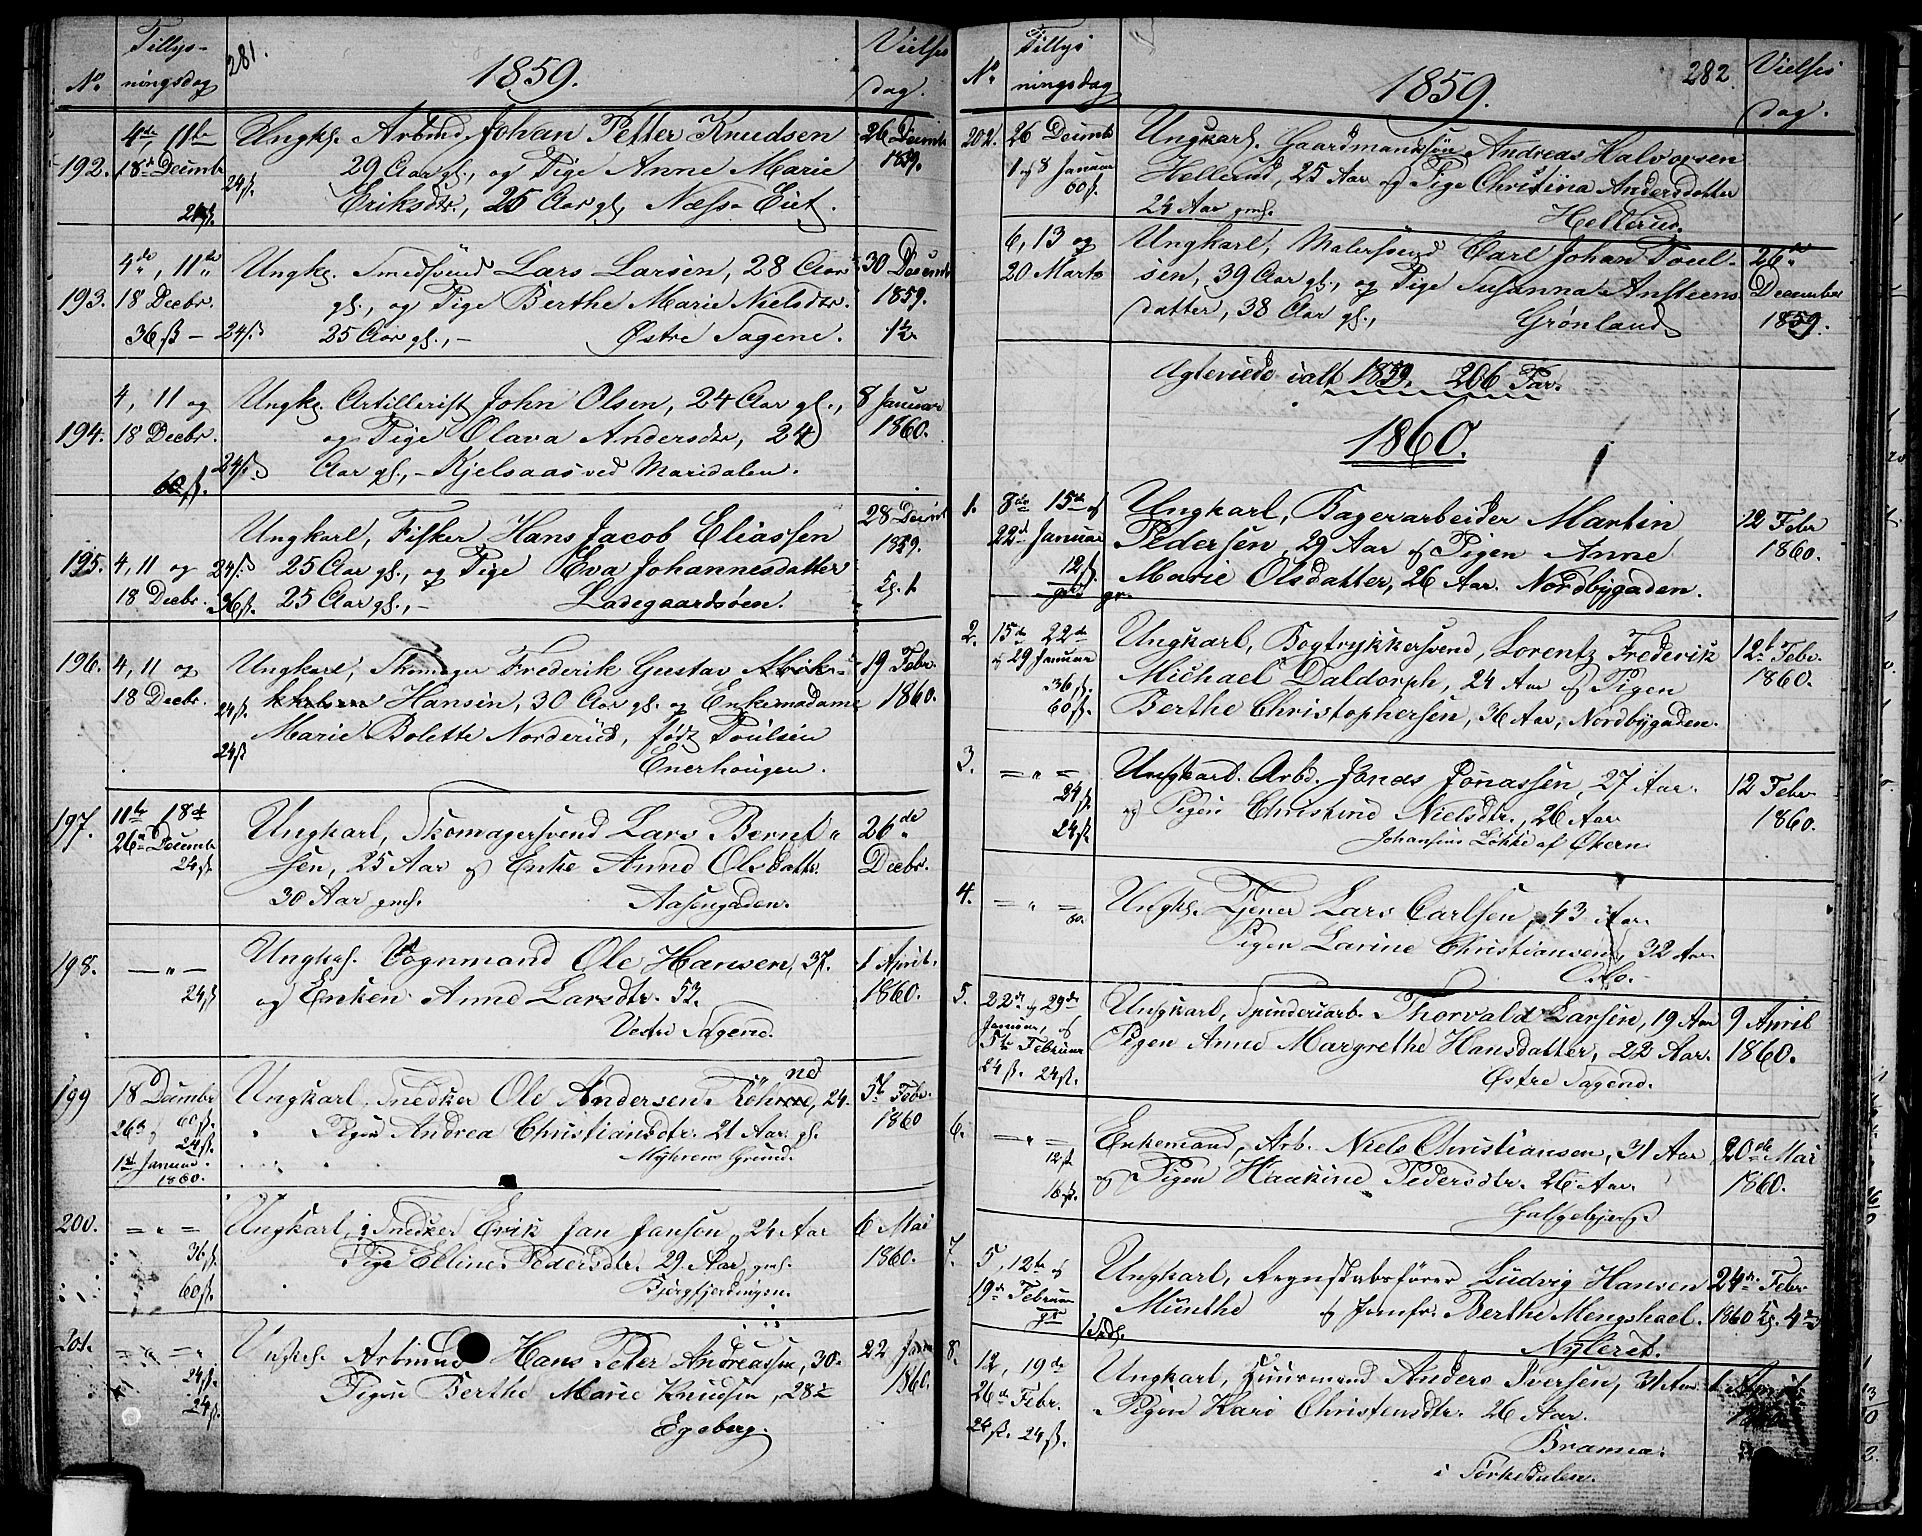 281.
1859.
Tillys-
ningsdag
No
Vielses
dag.
192.
4de, 11te
18de Decembr
24ß.
Ungk. Arbmd. Johan Petter Knudsen
29 Aar gl., og Pige Anne Marie
Eriksdtr., 25 Aar gl.
26 Decembr
1859.
193.
4de, 11te
18 Decbr.
36 ß –
24ß
Ungk. Smedsvend Lars Larsen, 28 Aar
gl., og Pige Berthe Marie Nielsdtr.
25 Aar gl., – Østre Sagene.
30 Decembr
1859.
194.
4, 11 og
18 Decbr.
60 ß.
24ß
Ungk. Artillerist John Olsen, 24 Aar gl.,
og Pige Olava Andersdtr, 24
Aar gl., – Kjelsaas ved Maridalen.
8 Januar
1860.
195.
4, 11 og
18 Decbr.
24ß
36ß.
Ungkarl, Fisker Hans Jacob Eliassen
25 Aar gl., og Pige Eva Johannesdatter
25 Aar gl., – Ladegaardsøen.
28 Decembr
1859.
196.
4, 11 og
18 Decbr.
24ß.
24ß
Ungkarl, Skomager Frederik Gustav
Hansen, 30 Aar gl. og Enkemadame
Marie Bolette Norderud, født Poulsen
Enerhougen.
19 Febr.
1860.
197.
11te 18de
26de Decembr
24ß.
Ungkarl, Skomagersvend Lars Bernt-
sen, 25 Aar og Enke Anne Olsdattr.
30 Aar gml. Aasengaden.
26de
Decbr.
198.
– " –
24ß
Ungkl. Vognmand Ole Hansen, 37.
og Enken Anne Larsdtr. 53.
Vestre Sagene.
1 April.
1860.
199
18 Decembr
60ß.
24ß.
1st Januar.
1860.
Ungkarl. Snedker Ole Andersen 24.
Pigen Andrea Christiansdtr. 21 Aar gl.
Myhrens Grund.
5t Febr.
1860
200.
= " =
36ß
60ß.
Ungkarl, Snedker Erik Jan Janson, 24 Aar
Pige Elline Pedersdtr. 29 Aar gml.
6 Mai
1860.
201.
24ß.
24ß.
Ungkl. Arbmd. Hans Peter Andreassen, 30
Pigen Berthe Marie Knudsen, 28
Egeberg.
22 Janr
1860.
282
1859.
No
Tillys
ningsdag
Vielses
dag.
202.
26 Decembr
1 og 8 Januar
60ß.
Ungkarl. Gaardmandssøn Andreas Halvorsen
Hellerud, 25 Aar og Pige Christina Andersdatter
24 Aar gml. Hellerud.
6, 13 og
20 Marts
Ungkarl, Malersvend Carl Johan Poul-
sen, 39 Aar gl., og Pige Susanna Ansteens
datter, 38 Aar gl., Grønland
26de
December
1859.
Agteviede ialt 1859. 206 Par.
1860.
1.
8de 15de og
22d Januar
12ß.
Ungkarl, Bagerarbeider Martin
Pedersen, 29 Aar og Pigen Anne
Marie Olsdatter, 26 Aar. Nordbygaden.
12 Febr
1860.
2.
15de 22de
og 29 Januar
36ß.
60ß.
Ungkarl, Bogtrykkersvend, Lorentz Frederik
Michael Daldorph, 24 Aar og Pigen
Berthe Christophersen, 36 Aar, Nordbygaden.
12t Febr.
1860.
3.
= " =
24ß.
24ß.
Ungkarl. Arbd. Jonas Jonassen, 27 Aar.
og Pigen Christine Nielsdtr. 26 Aar
Johansens Løkke af Økern
12 Febr
1860.
4.
= " =
60.
Ungkl. Tjener Lars Carlsen, 43 Aar.
Pigen Larine Christiansen, 32 Aar.
Oslo.
5.
22de og 29de
Januar, og
5te Februar
24 ß. 24ß.
Ungkarl, Spinderiarb. Thorvald Larsen, 19 Aar
Pigen Anne Margrethe Hansdatter, 22 Aar.
Østre Sagene.
9 April
1860.
6.
= " =
12ß
16ß.
Enkemand, Arb. Niels Christiansen, 31 Aar
og Pigen Haakine Pedersdtr. 26 Aar.
Galgebjerg.
20de Mai
1860.
7.
5, 12te og
19de Februar
Ungkarl, Regnskabsfører Ludvig Hansen
Munthe og Jomfr. Berthe Mengshoel.
Nyleret.
24de Febr
1860
8.
12, 19de
26de Febr.
24 ß. 24ß.
Ungkarl, Huusmand Anders Iversen, 31 Aar
Pigen Kari Christensdtr. 26 Aar.
i Sørkedalen.